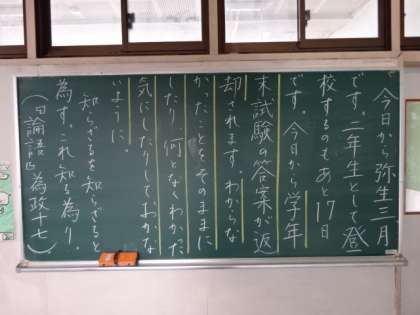 今日から弥生三月
です。二年生として登
校するのもあと17日
です。今日から学年
末試験の答案が返
却されます。わからな
かったことをそのままに
したり、何となくわかった
気にしたりしておかな
いように。
知らざるを知らざると
為す。これ知る為り。
(『論語』為政十七)